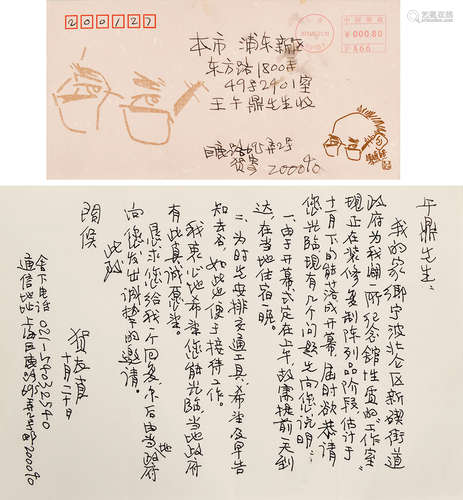 200127
中国邮政
¥000.80
本市 浦东新区
东方路1800弄
49号2401室
王午鼎先生收
200040
午鼎先生：
我的家乡宁波北仑区新碶街道
政府为我辟一所纪念馆性质的工作室
现正在装修复制陈列品阶段估计于
十一月下旬能落成开幕，届时欲恭请
您光临现有几个问题先向您说明：
一、由于开幕式定在上午，故需提前一天到
达，在当地住宿一晚。
二、为时先安排交通工具，希望及早告
知去否，如此便于接待工作。
我衷心地希望您能光临，当地政府
有此真诚愿望。
恳求您给我一个回复，尔后由当地政府
向您发出诚挚的邀请。
此致
颂侯
贺友直
十月二十日
舍下电话 021-54032540
通信地址 上海 200040